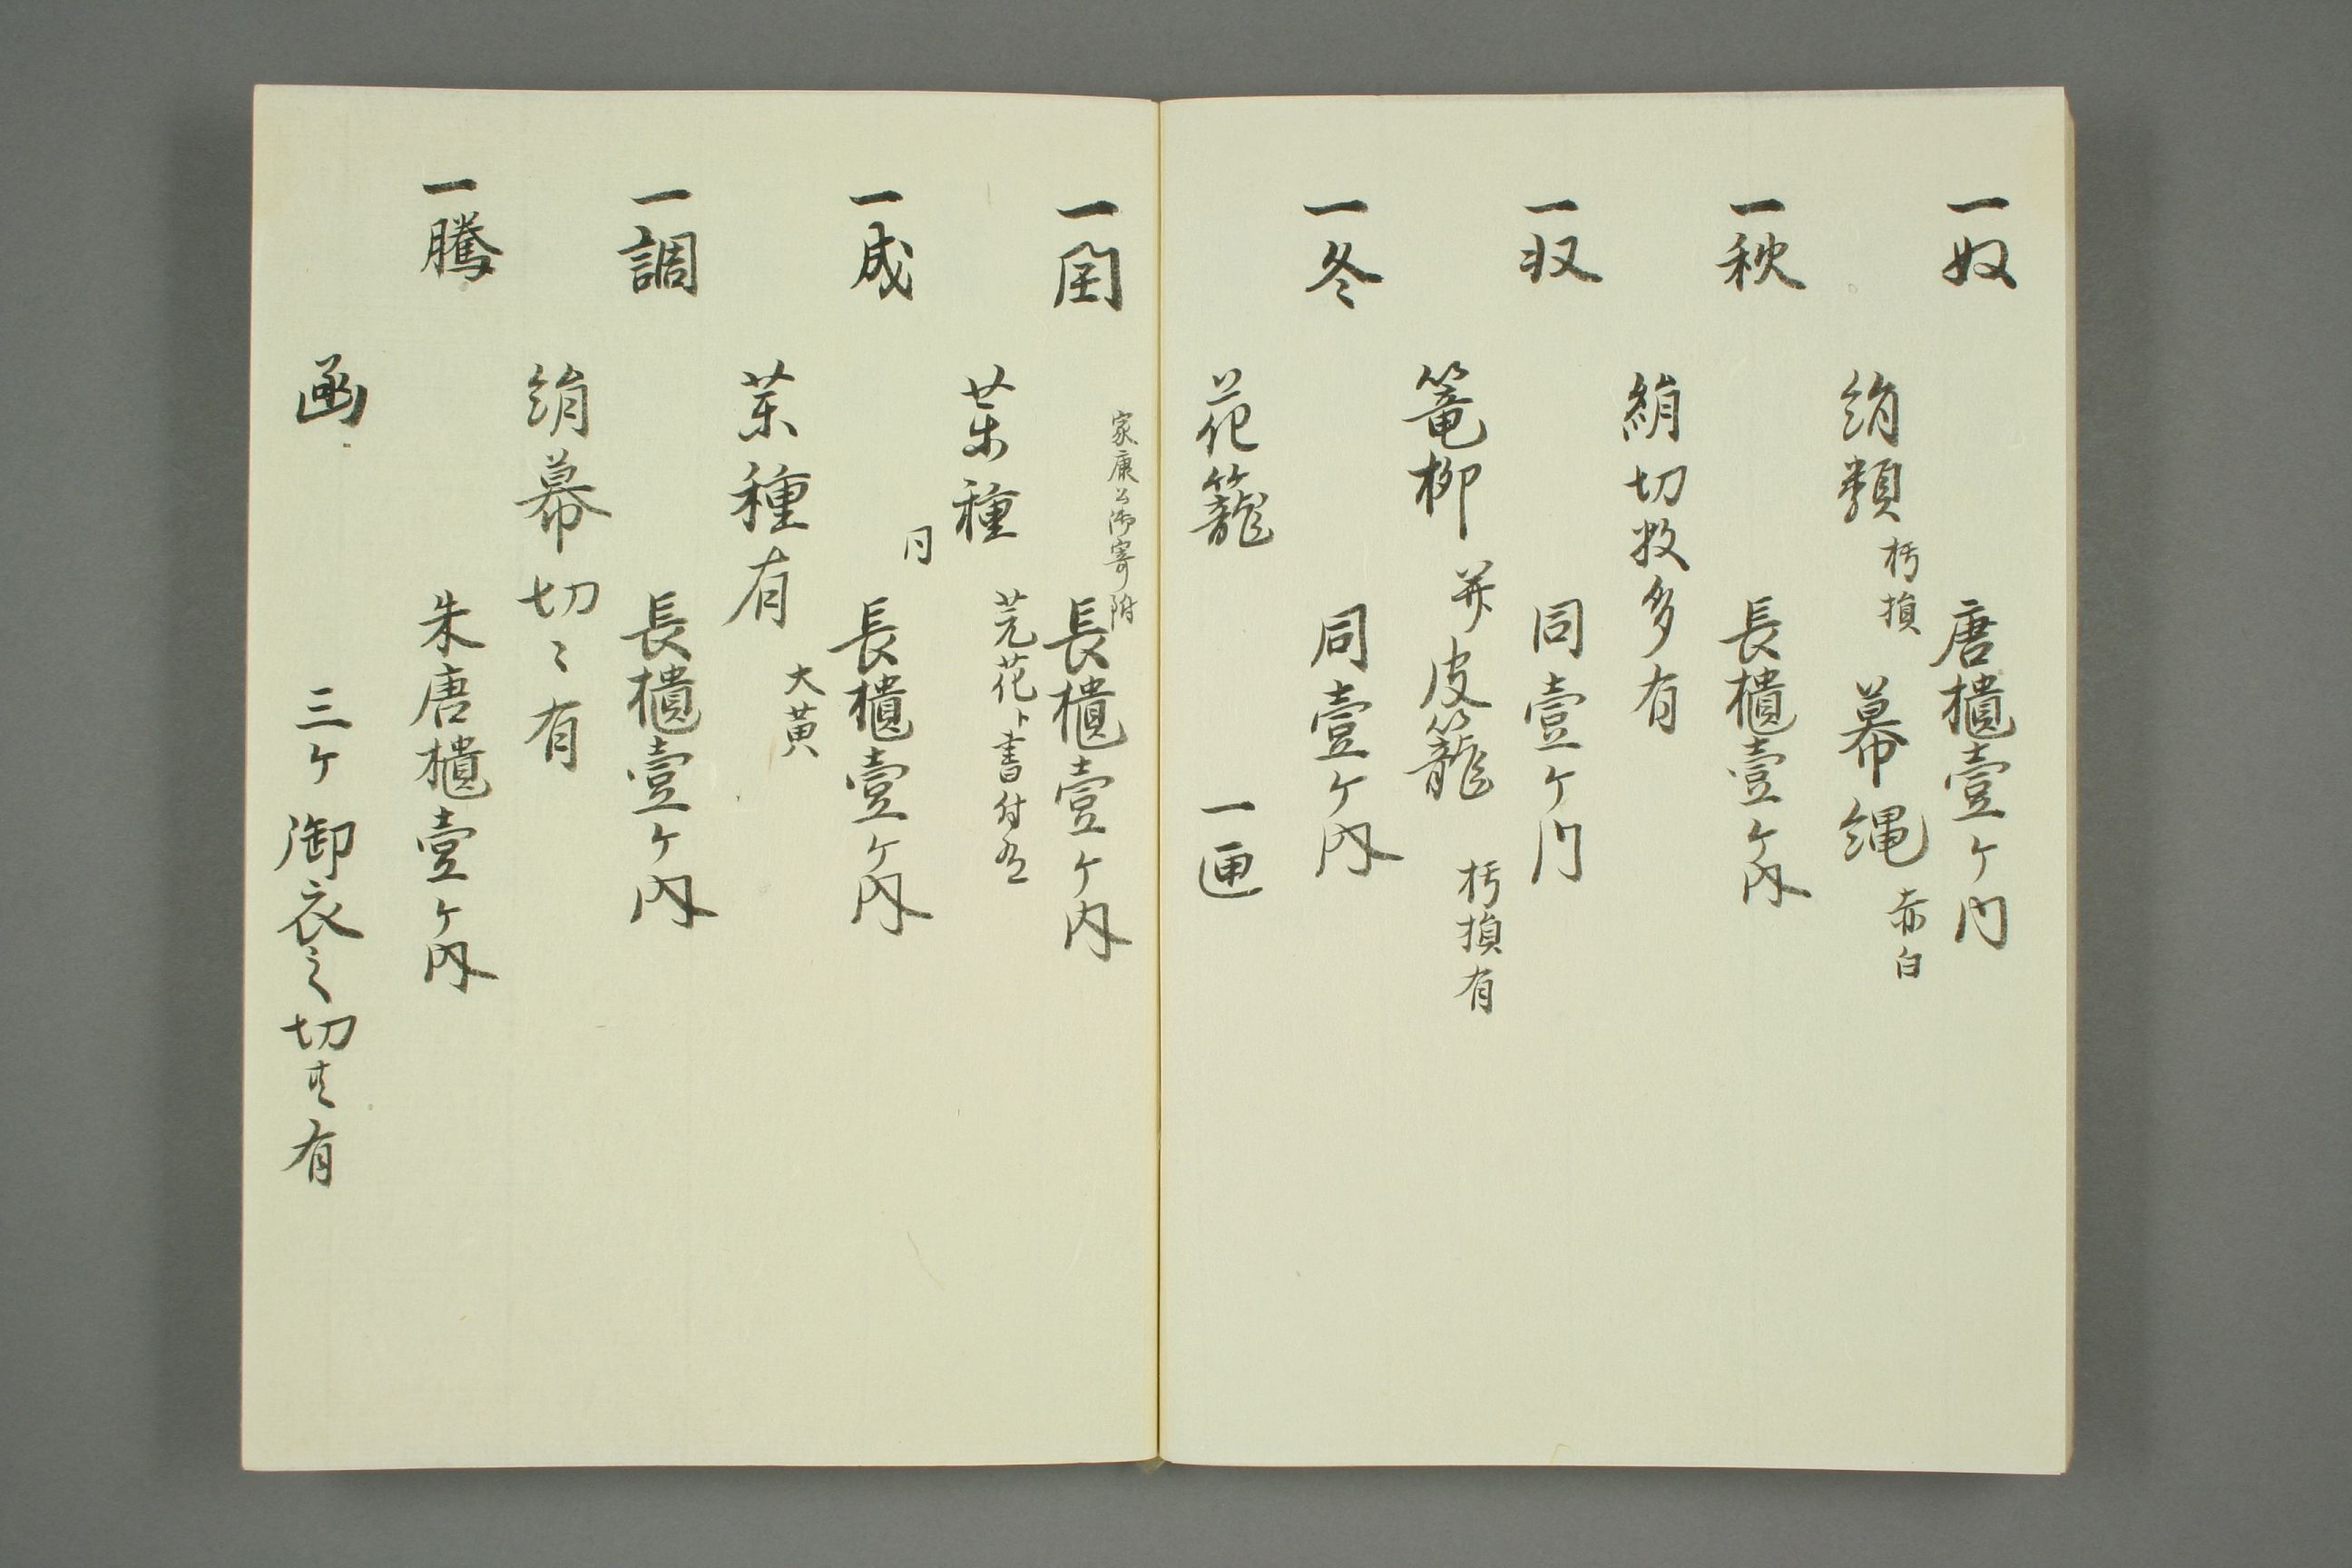 一奴 唐櫃壹ケ内
絹類 朽損 幕縄 赤白
一秋 長櫃壹ケ内
絹切数多有
一収 同壹ケ内
篭柳 并皮籠 朽損有
一冬 同壹ケ内
花籠 一匣
家康公御寄附
一閏 長櫃壹ケ内
薬種 芫花ト書付有
同
一成 長櫃壹ケ内
薬種有 大黄
一調 長櫃壹ケ内
絹幕切〻有
一騰 朱唐櫃壹ケ内
函 三ケ 御衣之切共有